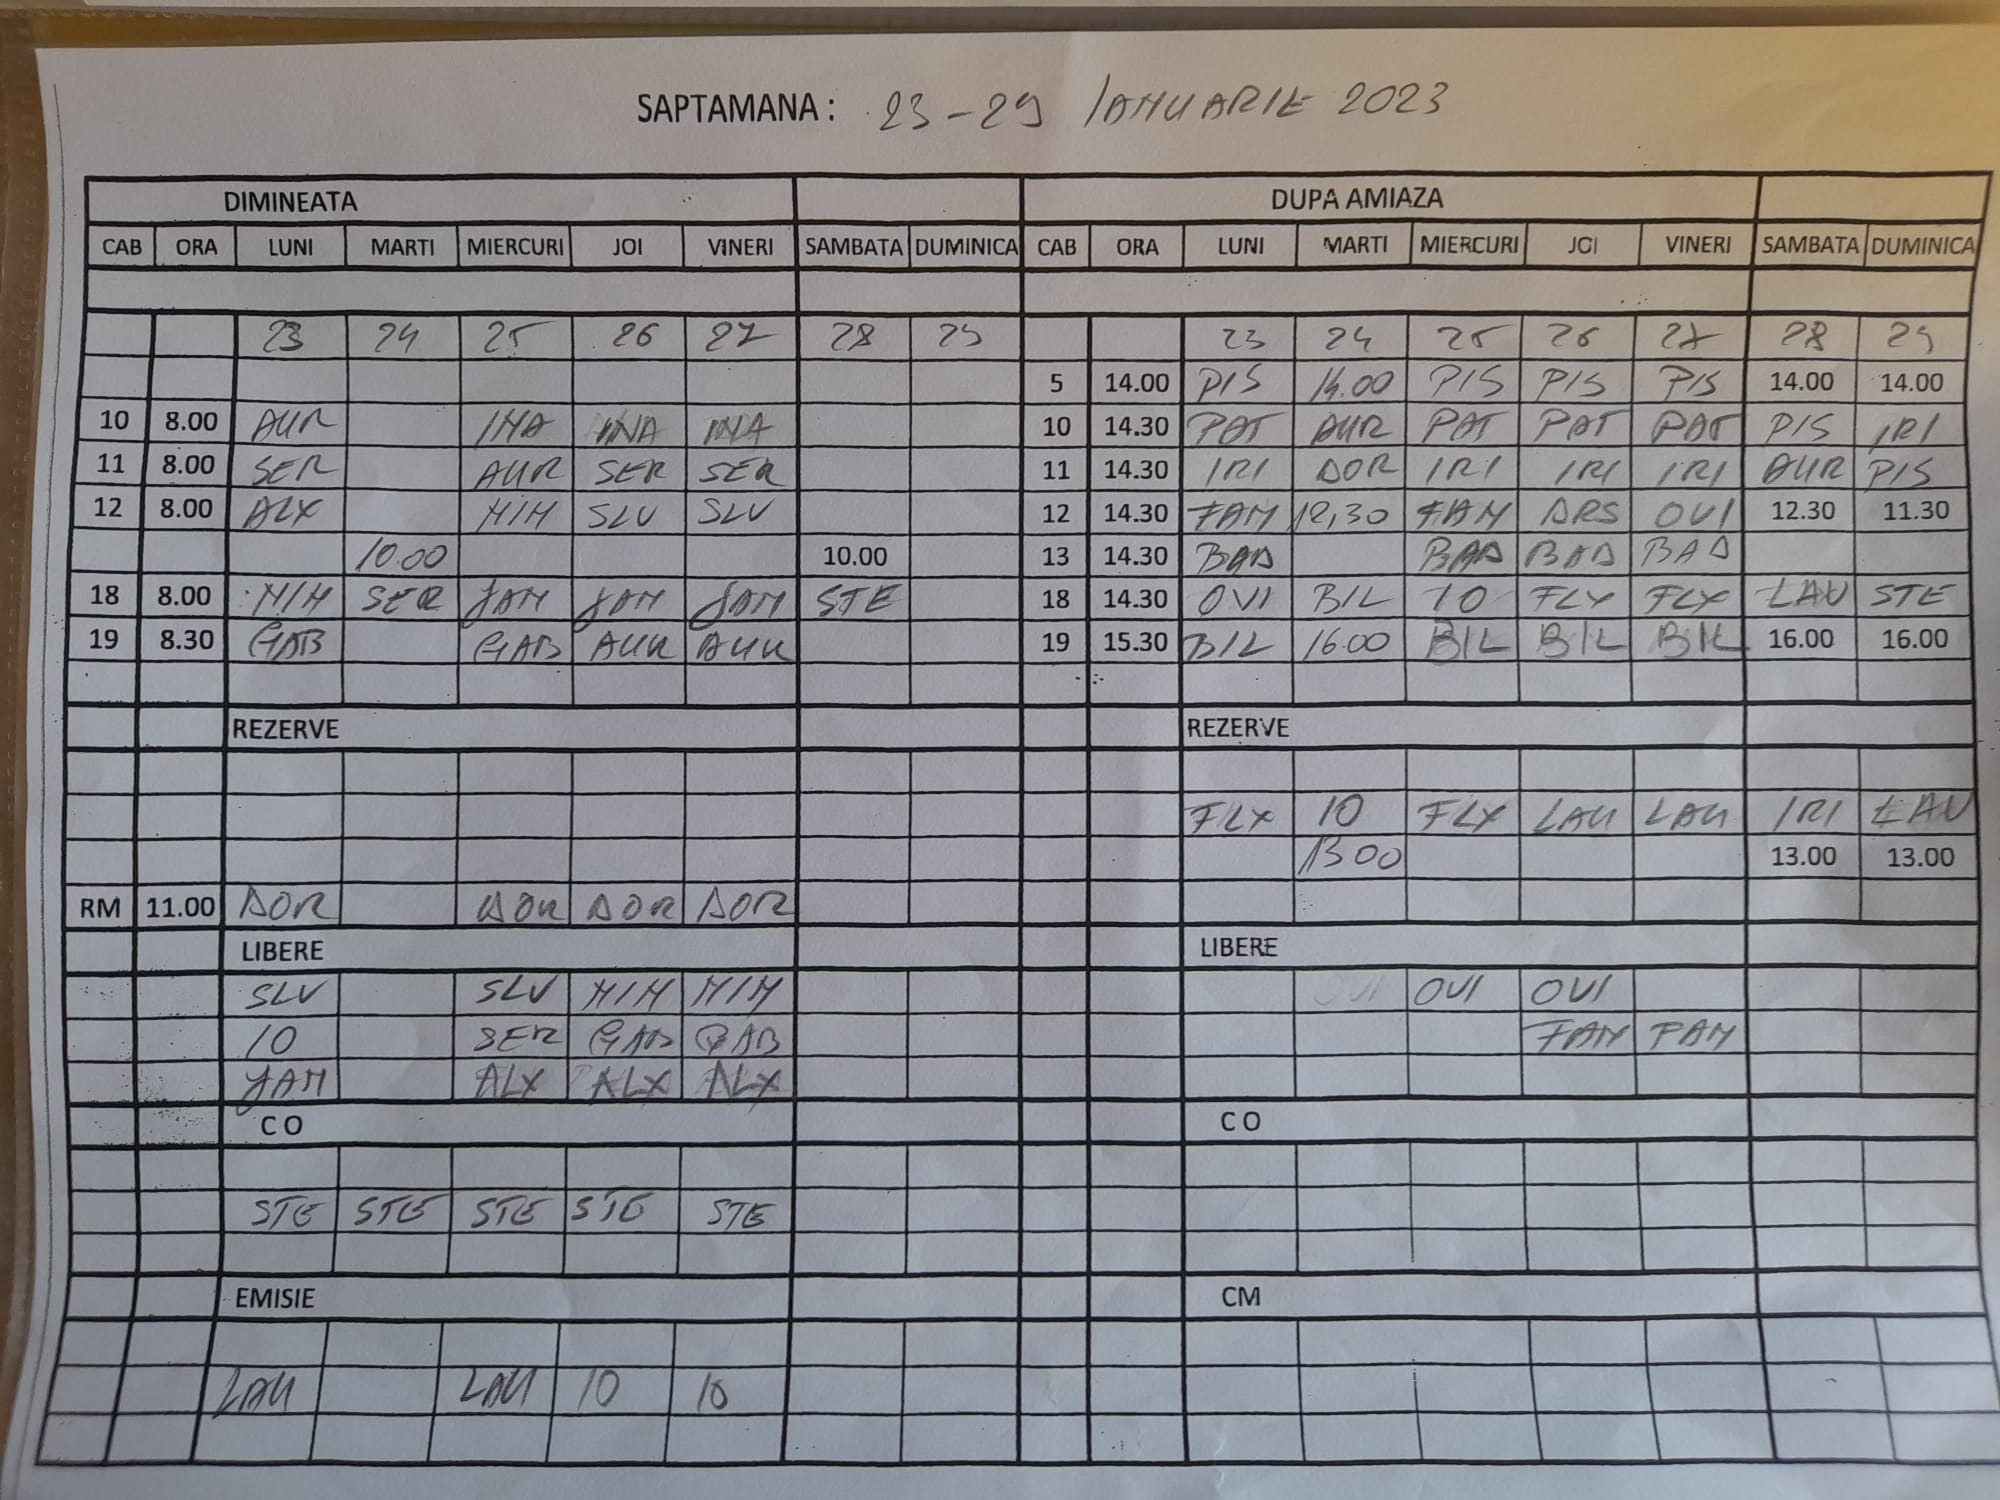 SAPTAMANA : 23-29 IANUARIE 2023
DIMINEATA DUPA AMIAZA
CAB ORA LUNI MARTI MIERCURI JOI VINERI SAMBATA DUMINICA CAB ORA LUNI MARTI MIERCURI JOI VINERI SAMBATA DUMINICA
23 24 25 26 27 28 29 23 24 25 26 27 28 29
5 14.00 PIS 14.00 PIS PIS PIS 14.00 14.00
10 8.00 AUR INA INA INA 10 14.30 PAT AUR PAT PAT PAT PIS IRI
11 8.00 SER AUR SER SER 11 14.30 IRI DOR IRI IRI IRI AUR PIS
12 8.00 ALX MIH SLV SLV 12 14.30 FAM 12,30 FAM ARS OVI 12.30 11.30
10.00 10.00 13 14.30 BAD BAD BAD BAD
18 8.00 MIH SER JAM JAM JAM STE 18 14.30 OVI BIL IO FLX FLX LAU STE
19 8.30 GAB GAB AUR AUR 19 15.30 BIL 16.00 BIL BIL BIL 16.00 16.00
REZERVE REZERVE
FLX IO FLX LAU LAU IRI LAU
13 00 13.00 13.00
RM 11.00 DOR DOR DOR DOR
LIBERE LIBERE
SLV SLV MIH MIH OVI OVI OVI
IO SER GAB GAB FAM FAM
JAM ALX ALX ALX
C O C O
STE STE STE STE STE
EMISIE CM
LAU LAU IO IO